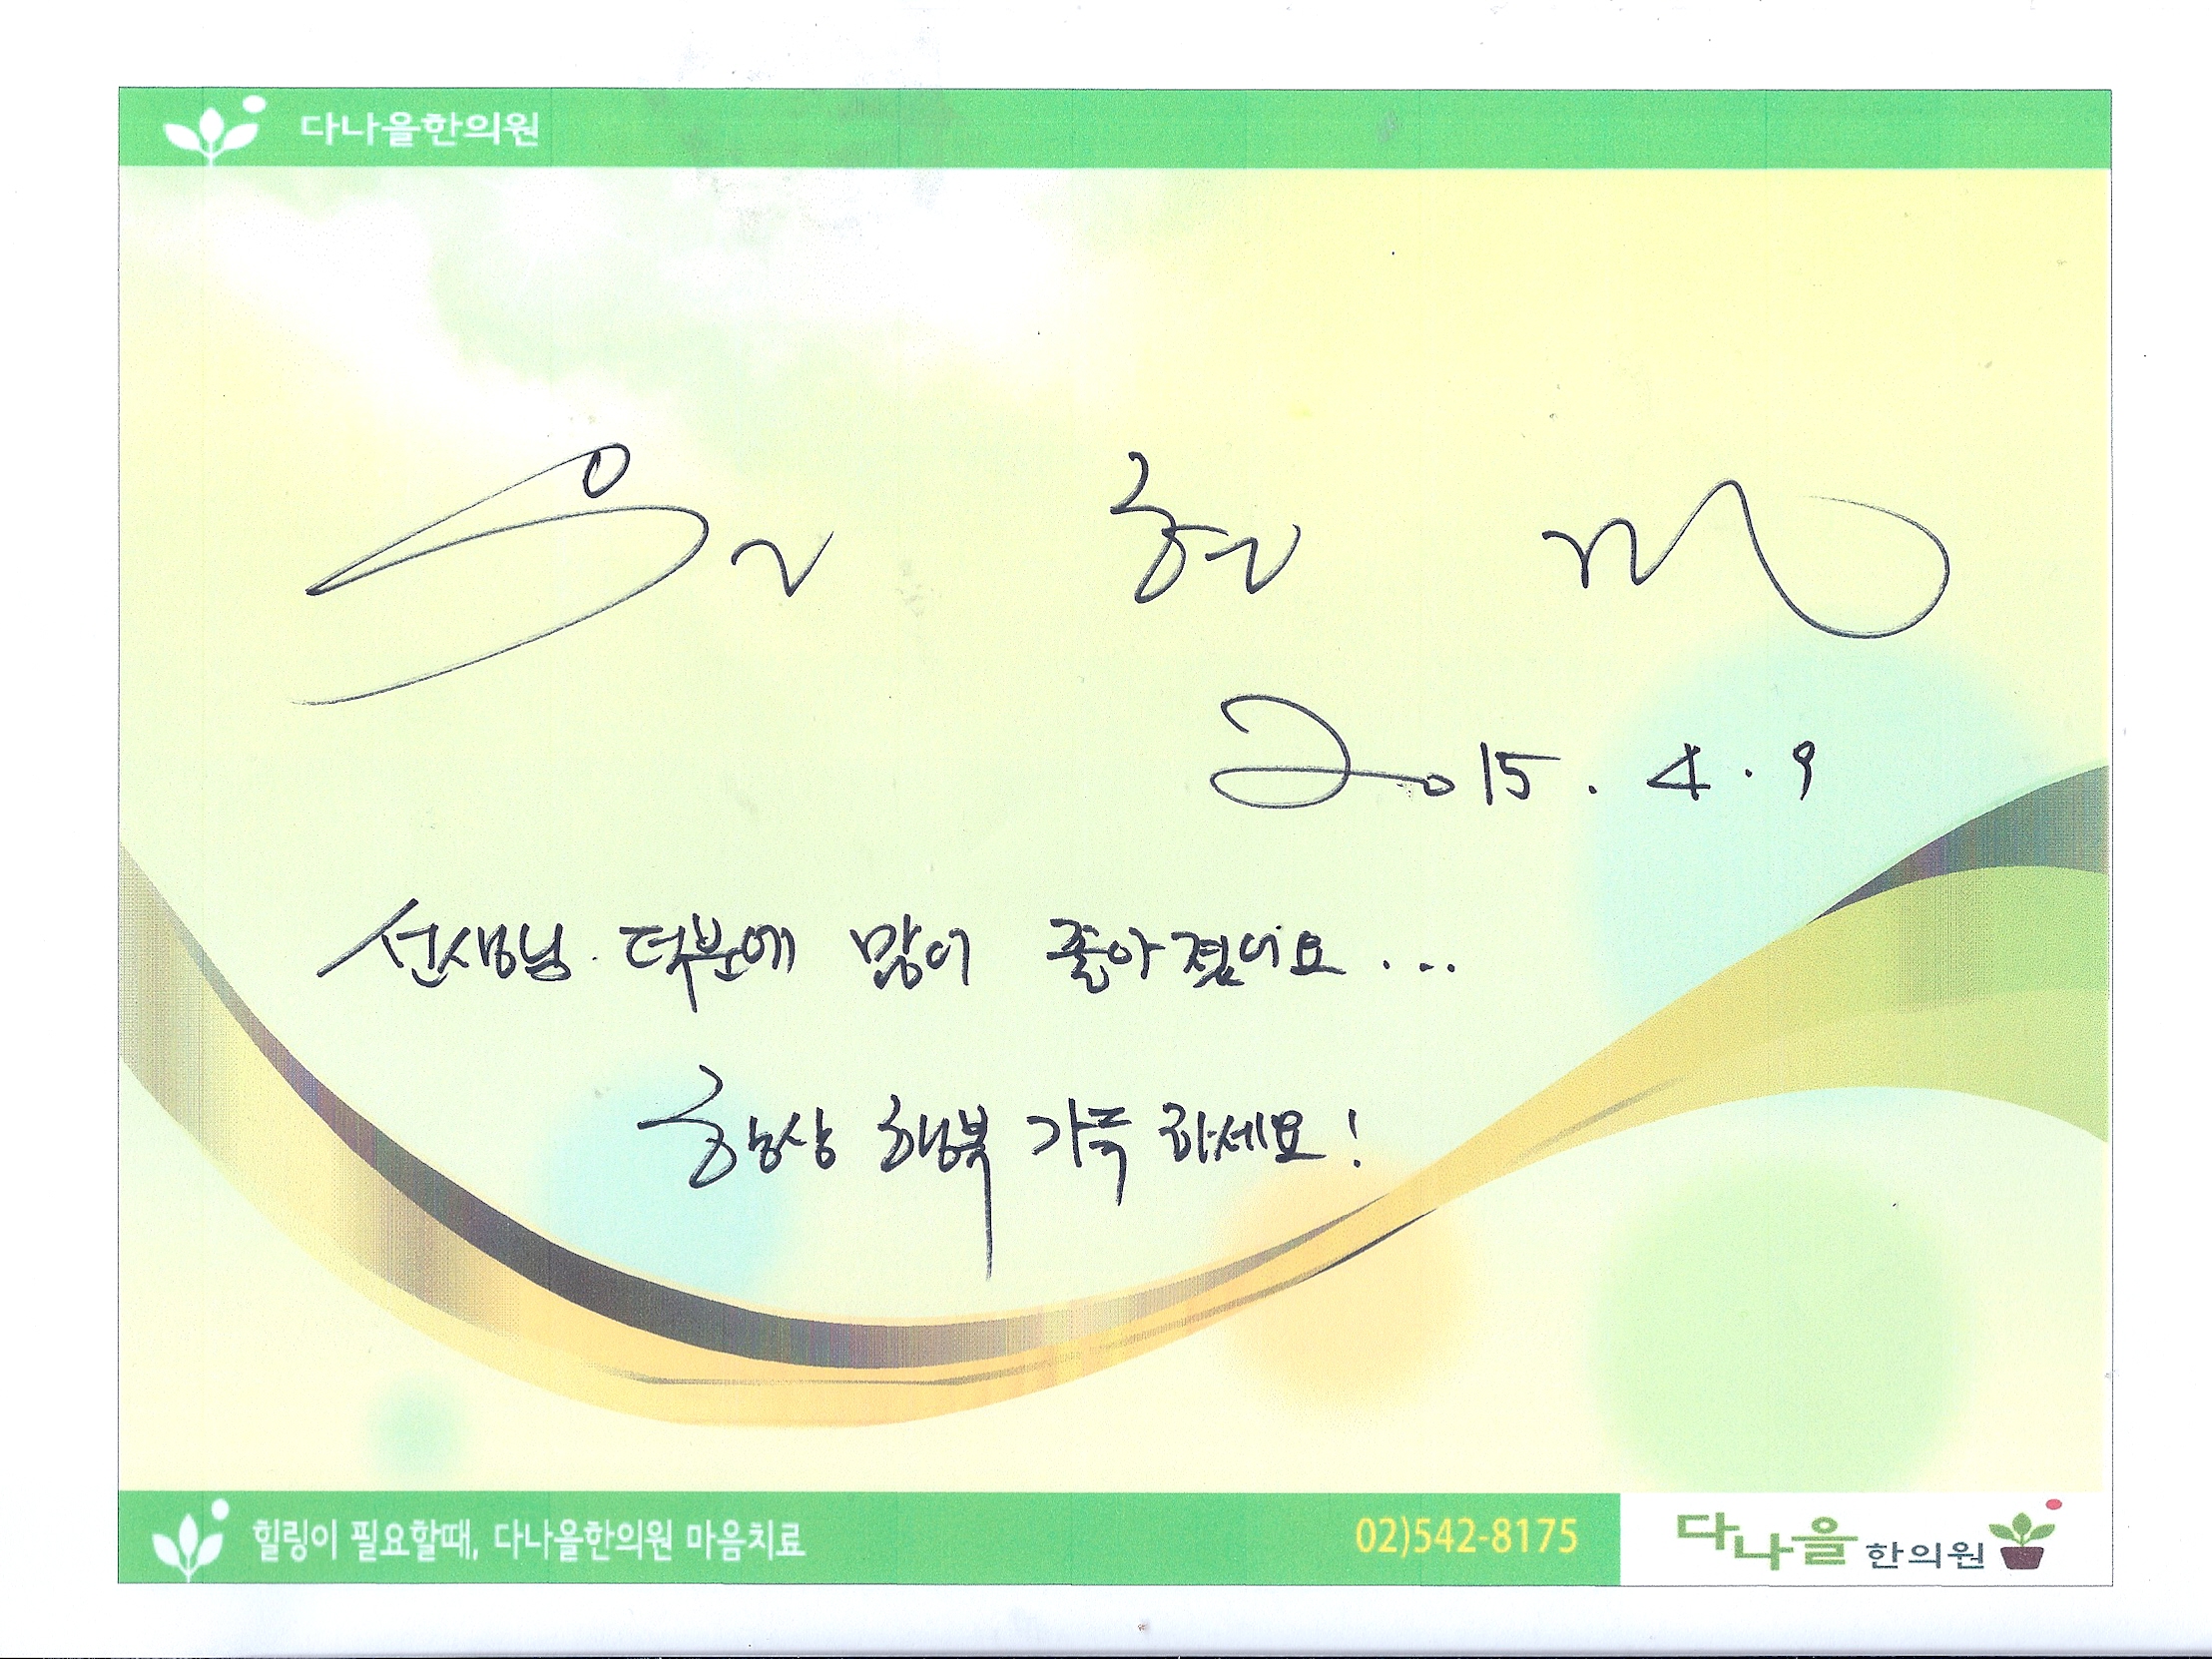 다나을한의원
2015. 4. 9
선생님 덕분에 많이 좋아졌어요...
항상 행복 가득 하세요!
힐링이 필요할때, 다나을한의원 마음치료
02)542-8175
다나을한의원